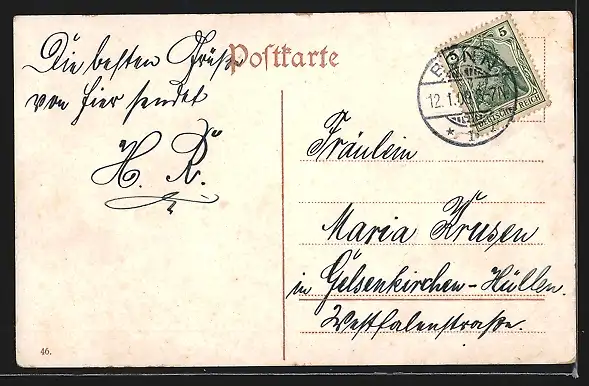 Postkarte
Die besten Grüße
von hier sendet
H. R.
BONN
12.1.08 6-7N.
* 1
5
DEUTSCHES REICH
Fräulein
Maria Krusen
in Gelsenkirchen-Hüllen.
Westfalenstraße.
46.